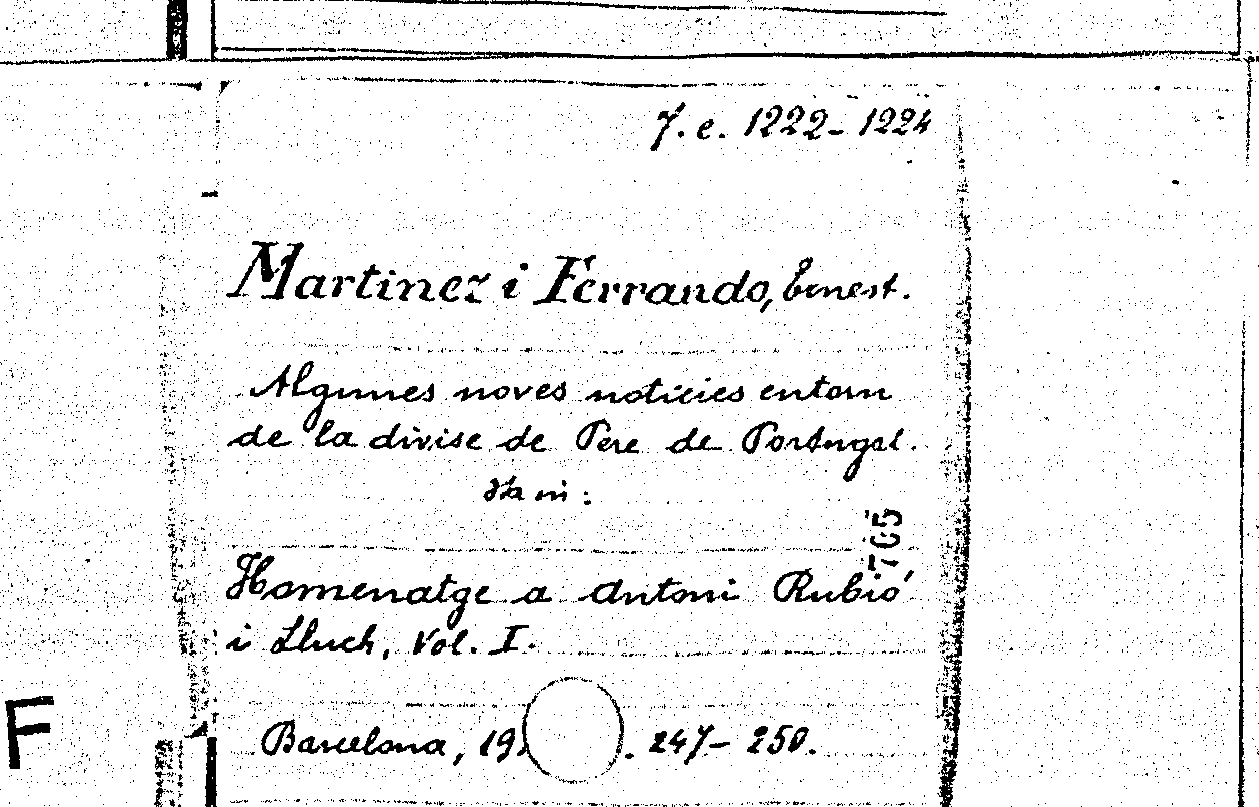 7. e. 1222-1224
Martinez i Ferrando, Ernest.
Algunes noves notícies entorn
de la divise de Pere de Portugal.
705
Homenatge a Antoni Rubió
i Lluch, Vol. I.
F
Barcelona, 19 . 247-250.